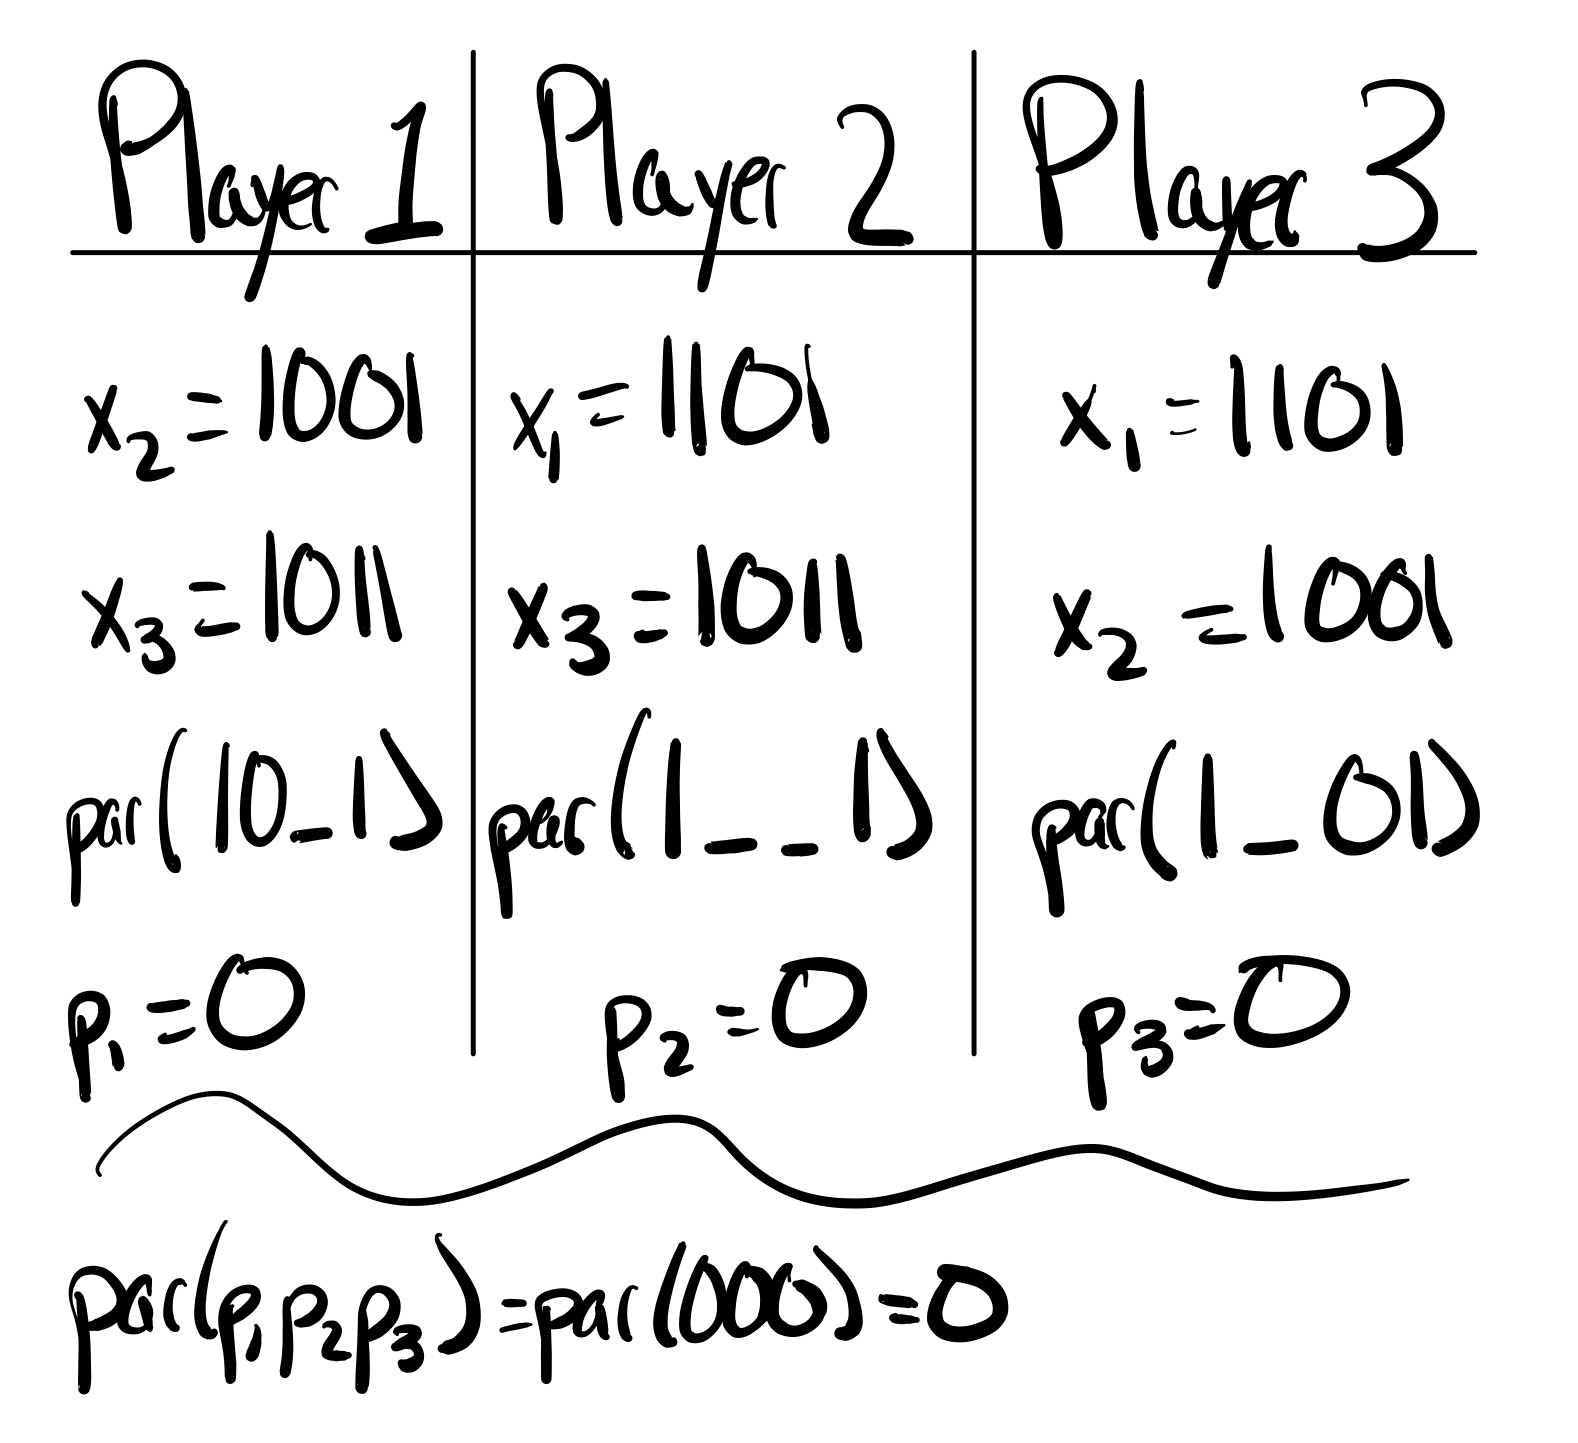 Player 1 Player 2 Player 3
x₂ = 1001 x₁ = 1101 x₁ = 1101
x₃ = 1011 x₃ = 1011 x₂ = 1001
par(10_1) par(1__1) par(1_01)
p₁ = 0 p₂ = 0 p₃ = 0
par(p₁p₂p₃) = par(000) = 0